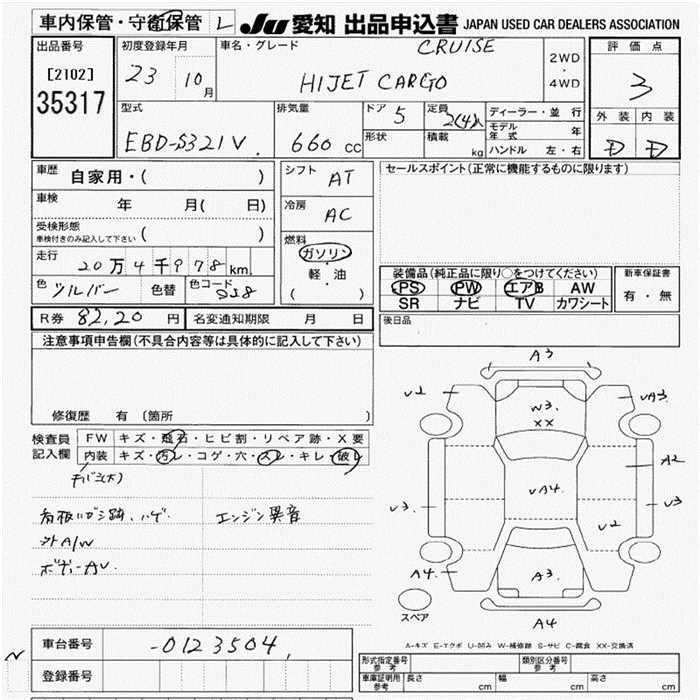 車内保管・守衛保管 L JU 愛知 出品申込書 JAPAN USED CAR DEALERS ASSOCIATION
出品番号 初度登録年月 車名・グレード CRUISE 2WD・4WD 評価点
[2102] 23 10月 HIJET CARGO 3
35317
型式 排気量 ドア 5 定員 2(4)人 ディーラー・並行 外装 内装
EBD-S321V 660 CC 形状 積載 kg モデル年式 年 D D
ハンドル 左・右
車歴 自家用・( ) シフト AT セールスポイント(正常に機能するものに限ります)
車検 年 月( 日) 冷房 AC
受検形態 ( )
車検付きのみ記入して下さい
燃料 ガソリン・軽油
( )
走行 20万4千978 km
装備品(純正品に限り○をつけてください) 新車保証書
色 シルバー 色替 色コード S28 PS PW エアB AW 有・無
SR ナビ TV カワシート
R券 82,20 円 名変通知期限 月 日 後日品
注意事項申告欄(不具合内容等は具体的に記入して下さい)
修復歴 有 (箇所 )
検査員記入欄 FW キズ・飛石・ヒビ割・リペア跡・X要
内装 キズ・汚レ・コゲ・穴・スレ・キレ・破レ
看板ハガシ跡、ハゲ エンジン異音
外A/W
ボディーAU
A3
U2 W3 XX UA3
A2
U3 UA4 U3
U2
A4 A3 A4
スペア A4
A-キズ E-エクボ U-凹み W-補修跡 S-サビ C-腐食 XX-交換済
車台番号 -0123504
登録番号
形式指定番号 参考 類別区分番号 参考
車庫証明用 参考 長さ cm 幅 cm 高さ cm